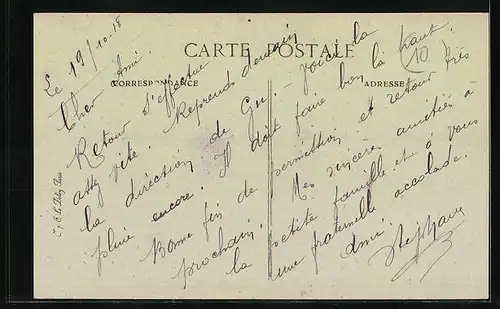 CARTE POSTALE
CORRESPONDANCE
ADRESSE
10
Le 19/10-18
Cher Ami.
Retour s'effectue
assez vite. Reprends demain
la direction de Voici la
pluie encore. Il doit faire bon là haut.
Bonne fin de permission et retour très
prochain. Mes sincères amitiés à
la petite famille et à vous
une fraternelle accolade.
Ami.
Stephane